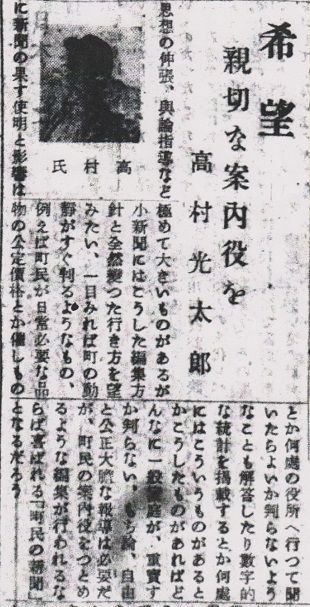 希望
親切な案内役を
高村光太郎
高村氏
思想の伸張、輿論指導など
に新聞の果す使命と影響は
極めて大きいものがあるが
小新聞にはこうした編集方
針と全然變つた行き方を望
みたい、一目みれば町の動
靜がすぐ判るようなもの、
例えば町民が日常必要な品
物の公定價格とか催しもの
とか何處の役所へ行つて聞
いたらよいか判らないよう
なことも解答したり數字的
な統計を掲載するとか何處
にはこういうものがあると
かこうしたものがあればど
んなに一般家庭が、重寳す
か判らない、もち論、自由
と公正大膽な報導は必要だ
が、町民の案内役をつとめ
るような編集が行われるな
らば喜ばれる「町民の新聞」
となるだろう